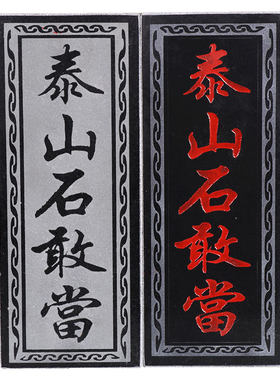 泰山石敢當
泰山石敢當